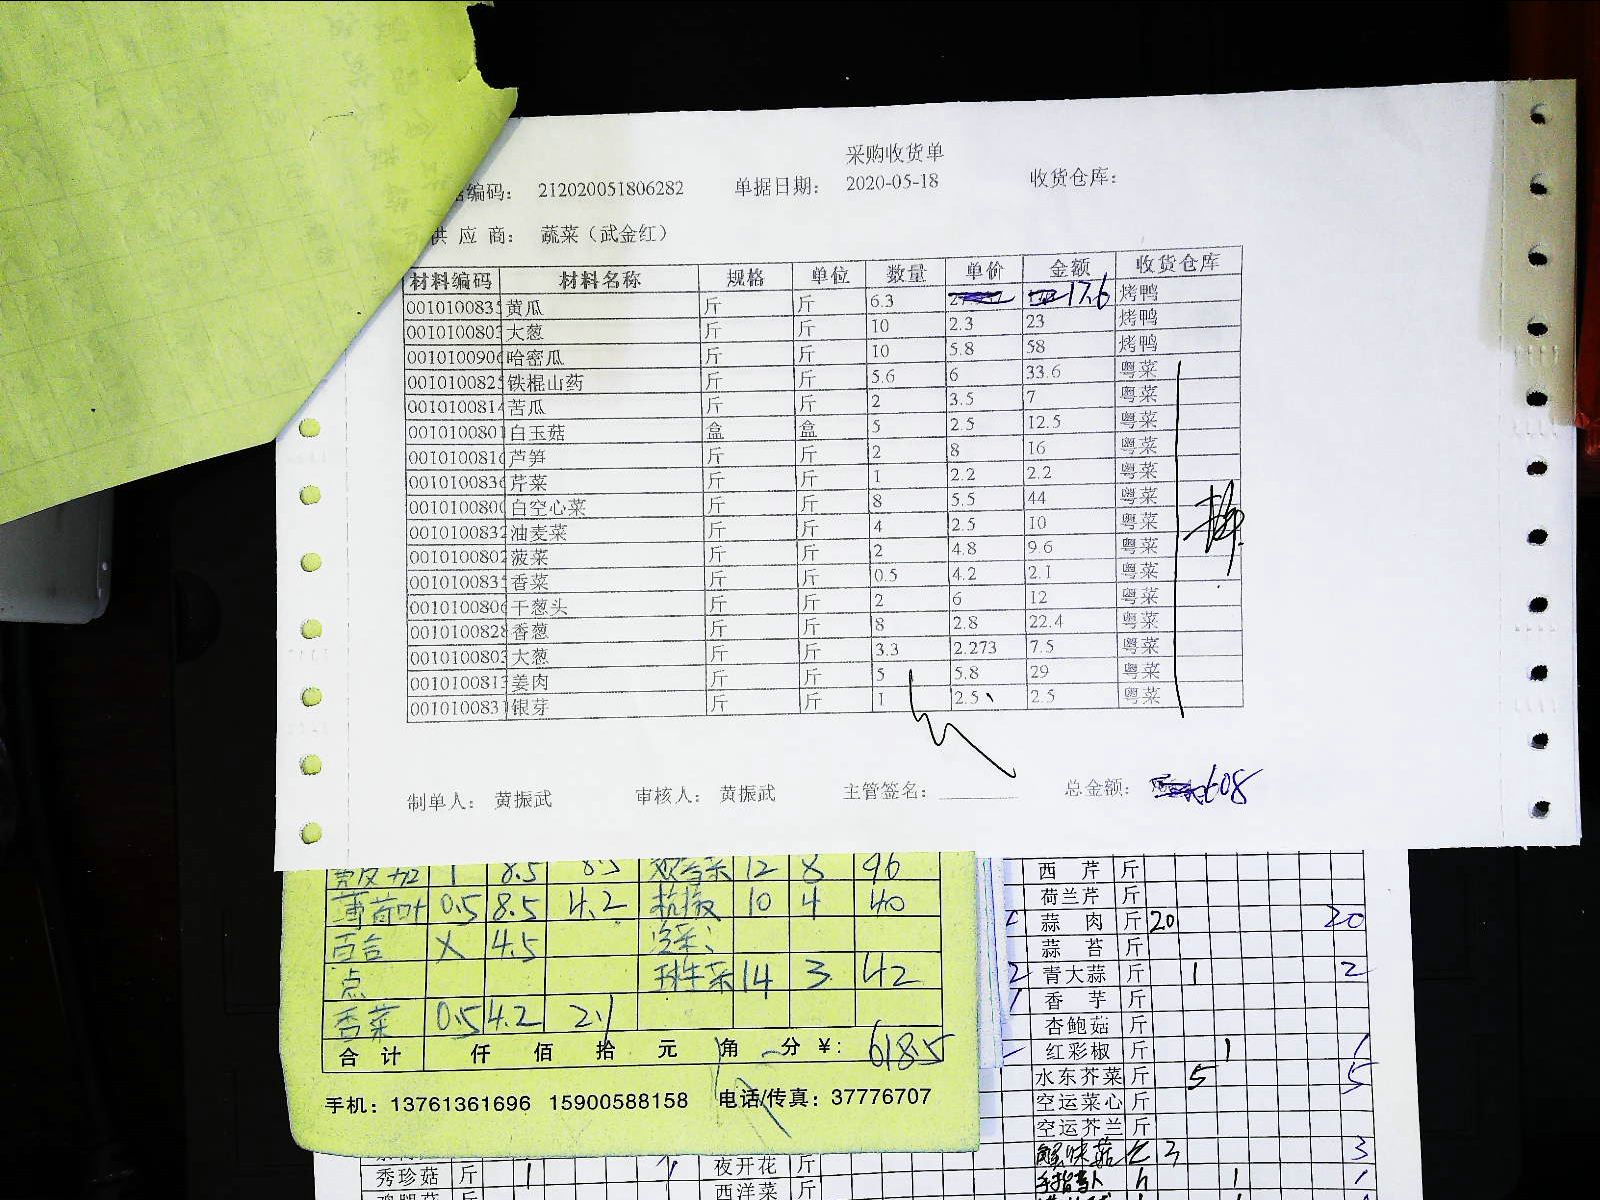 采购收货单
编码： 212020051806282 单据日期： 2020-05-18 收货仓库：
供 应 商： 蔬菜（武金红）
材料编码 材料名称 规格 单位 数量 单价 金额 收货仓库
001010083 黄瓜 斤 斤 6.3 17.6 烤鸭
001010080 大葱 斤 斤 10 2.3 23 烤鸭
001010090 哈密瓜 斤 斤 10 5.8 58 烤鸭
001010082 铁棍山药 斤 斤 5.6 6 33.6 粤菜
001010081 苦瓜 斤 斤 2 3.5 7 粤菜
001010080 白玉菇 盒 盒 5 2.5 12.5 粤菜
001010081 芦笋 斤 斤 2 8 16 粤菜
001010083 芹菜 斤 斤 1 2.2 2.2 粤菜
001010080 白空心菜 斤 斤 8 5.5 44 粤菜
001010083 油麦菜 斤 斤 4 2.5 10 粤菜
001010080 菠菜 斤 斤 2 4.8 9.6 粤菜
001010083 香菜 斤 斤 0.5 4.2 2.1 粤菜
001010080 干葱头 斤 斤 2 6 12 粤菜
001010082 香葱 斤 斤 8 2.8 22.4 粤菜
001010080 大葱 斤 斤 3.3 2.273 7.5 粤菜
001010081 姜肉 斤 斤 5 5.8 29 粤菜
001010083 银芽 斤 斤 1 2.5 2.5 粤菜
制单人： 黄振武 审核人： 黄振武 主管签名： 总金额： 608
1 8.5 8.5 12 8 96
薄荷叶 0.5 8.5 4.2 杭椒 10 4 40
百合 X 4.5
点 14 3 42
香菜 0.5 4.2 2.1
合 计 仟 佰 拾 元 角 分 ¥： 618.5
手机：13761361696 15900588158 电话/传真：37776707
西 芹 斤
荷兰芹 斤
蒜 肉 斤 20 20
蒜 苔 斤
2 青大蒜 斤 1 2
1 香 芋 斤
杏鲍菇 斤
红彩椒 斤 1 1
水东芥菜 斤 5 5
空运菜心 斤
空运芥兰 斤
蟹味菇 3 3
1 1
秀珍菇 斤 1 1 夜开花 斤
西洋菜 斤